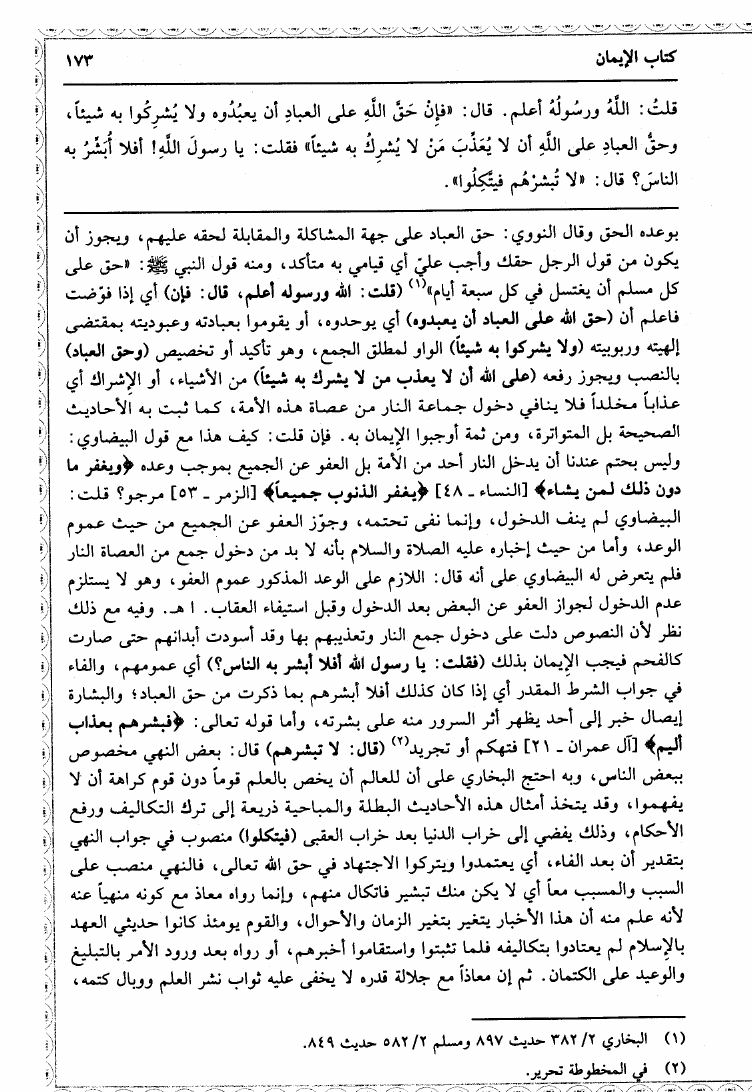 كتاب الإيمان ١٧٣
قلتُ: اللَّهُ ورسُولُهُ أعلم. قال: «فإنْ حَقَّ اللَّهِ على العبادِ أن يعبُدُوه ولا يُشرِكُوا به شيئاً،
وحقُّ العبادِ على اللَّهِ أن لا يُعَذِّبَ مَنْ لا يُشركُ به شيئاً» فقلت: يا رسولَ اللَّهِ! أفلا أُبَشِّرُ به
الناسَ؟ قال: «لا تُبشرْهُم فيتَّكِلُوا».
بوعده الحق وقال النووي: حق العباد على جهة المشاكلة والمقابلة لحقه عليهم، ويجوز أن
يكون من قول الرجل حقك وأجب عليّ أي قيامي به متأكد، ومنه قول النبي ﷺ: «حق على
كل مسلم أن يغتسل في كل سبعة أيام»(١) (قلت: الله ورسوله أعلم، قال: فإن) أي إذا فوّضت
فاعلم أن (حق الله على العباد أن يعبدوه) أي يوحدوه، أو يقوموا بعبادته وعبوديته بمقتضى
إلهيته وربوبيته (ولا يشركوا به شيئاً) الواو لمطلق الجمع، وهو تأكيد أو تخصيص (وحق العباد)
بالنصب ويجوز رفعه (على الله أن لا يعذب من لا يشرك به شيئاً) من الأشياء، أو الإشراك أي
عذاباً مخلداً فلا ينافي دخول جماعة النار من عصاة هذه الأمة، كما ثبت به الأحاديث
الصحيحة بل المتواترة، ومن ثمة أوجبوا الإيمان به. فإن قلت: كيف هذا مع قول البيضاوي:
وليس بحتم عندنا أن يدخل النار أحد من الأمة بل العفو عن الجميع بموجب وعده ﴿ويغفر ما
دون ذلك لمن يشاء﴾ [النساء ـ ٤٨] ﴿يغفر الذنوب جميعاً﴾ [الزمر ـ ٥٣] مرجو؟ قلت:
البيضاوي لم ينف الدخول، وإنما نفى تحتمه، وجوّز العفو عن الجميع من حيث عموم
الوعد، وأما من حيث إخباره عليه الصلاة والسلام بأنه لا بد من دخول جمع من العصاة النار
فلم يتعرض له البيضاوي على أنه قال: اللازم على الوعد المذكور عموم العفو، وهو لا يستلزم
عدم الدخول لجواز العفو عن البعض بعد الدخول وقبل استيفاء العقاب. ا هـ. وفيه مع ذلك
نظر لأن النصوص دلت على دخول جمع النار وتعذيبهم بها وقد أسودت أبدانهم حتى صارت
كالفحم فيجب الإيمان بذلك (فقلت: يا رسول الله أفلا أبشر به الناس؟) أي عمومهم، والفاء
في جواب الشرط المقدر أي إذا كان كذلك أفلا أبشرهم بما ذكرت من حق العباد؛ والبشارة
إيصال خبر إلى أحد يظهر أثر السرور منه على بشرته، وأما قوله تعالى: ﴿فبشرهم بعذاب
أليم﴾ [آل عمران ـ ٢١] فتهكم أو تجريد(٢) (قال: لا تبشرهم) قال: بعض النهي مخصوص
ببعض الناس، وبه احتج البخاري على أن للعالم أن يخص بالعلم قوماً دون قوم كراهة أن لا
يفهموا، وقد يتخذ أمثال هذه الأحاديث البطلة والمباحية ذريعة إلى ترك التكاليف ورفع
الأحكام، وذلك يفضي إلى خراب الدنيا بعد خراب العقبى (فيتكلوا) منصوب في جواب النهي
بتقدير أن بعد الفاء، أي يعتمدوا ويتركوا الاجتهاد في حق الله تعالى، فالنهي منصب على
السبب والمسبب معاً أي لا يكن منك تبشير فاتكال منهم، وإنما رواه معاذ مع كونه منهياً عنه
لأنه علم منه أن هذا الأخبار يتغير بتغير الزمان والأحوال، والقوم يومئذ كانوا حديثي العهد
بالإسلام لم يعتادوا بتكاليفه فلما تثبتوا واستقاموا أخبرهم، أو رواه بعد ورود الأمر بالتبليغ
والوعيد على الكتمان. ثم إن معاذاً مع جلالة قدره لا يخفى عليه ثواب نشر العلم ووبال كتمه،
(١) البخاري ٣٨٢/٢ حديث ٨٩٧ ومسلم ٥٨٢/٢ حديث ٨٤٩.
(٢) في المخطوطة تحرير.